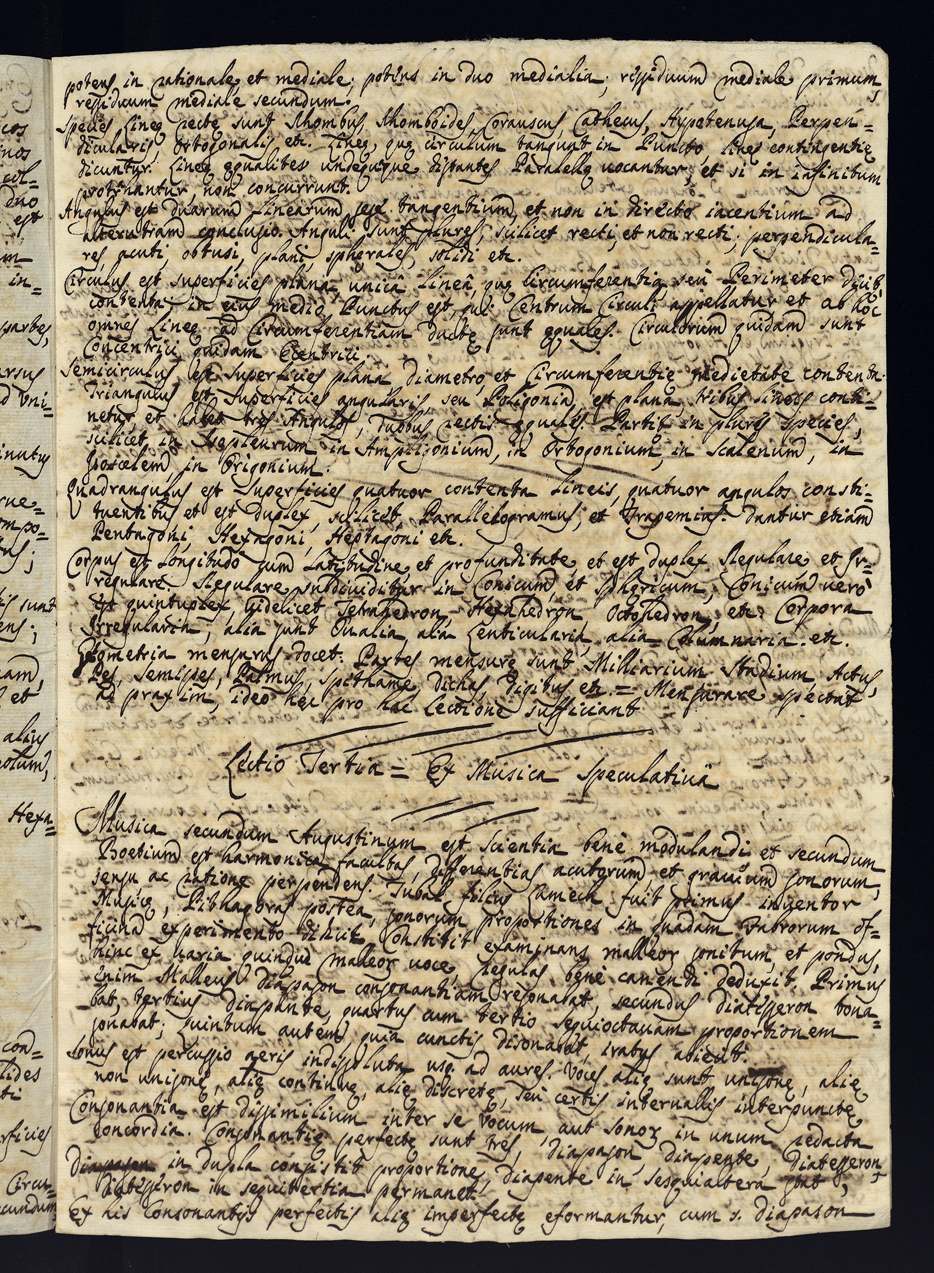 potens in rationale et mediale; potens in duo medialia; residuum mediale primum,
residuum mediale secundum.
Species lineę rectę sunt Rhombus, Rhomboides, Corauscus, Cathecus, Hypotenusa, Perpen=
dicularis, Ortogonalis etc. Lineę, quę circulum tangunt in Puncto, lineę contingentię
dicuntur. Lineę equaliter undequaque distantes Parallelę vocantur, et si in infinitum
protrahantur, non concurrunt.
Angulus est duarum linearum, sese tangentium, et non in directo iacentium ad
alterutram conclusio. Anguli sunt plures, scilicet recti, et non recti; perpendicula=
res, acuti, obtusi, plani, spherales, solidi etc.
Circulus est superficies plana, unicâ lineâ, quę Circumferentia, seu Perimeter dicit,
contenta, in eius medio Punctus est, qui Centrum Circuli appellatur, et ab hoc
omnes lineę ad Circumferentiam ductę sunt equales. Circulorum quidam sunt
Concentrici, quidam Eccentrici.
Semicirculus est superficies plana Diametro, et Circumferentię medietate contenta.
Triangulus est superficies angularis, seu Poligonia, est plana, tribus lineis conti=
netur, et habet tres Angulos, duobus rectis equales. Partit in plures species,
scilicet, in Isopleurum, in Ampligonium, in Ortogonium, in Scalenum, in
Isoscelem, in Origonium.
Quadrangulus est superficies quatuor contenta lineis, quatuor angulos consti=
tuentibus et est duplex, scilicet Parallelogramus, et Trapemias. Dantur etiam
Pentagoni, Hexagoni, Heptagoni etc.
Corpus est longitudo cum latitudine, et profunditate, et est duplex Regulare et Ir=
regulare. Regulare subdividitur in Conicum, et Sphęricum, Conicum verò
est quintuplex, videlicet Tetrahedron, Hexahedron, Octohedron, etc. Corpora
Irregularia, alia sunt Oualia, alia Lenticularia, alia Columnaria. etc.
Geometria mensuras docet. Partes mensurę sunt, Milliarium, Stadium, Actus,
Pes, Semipes, Palmus, Spithame, Dichas, Digitus etc. = Mensurare spectat
ad praxim, ideo hęc pro hac Lectione sufficiant
Lectio Tertia = Ex Musica Speculativâ
Musica secundum Augustinum est scientia bene modulandi, et secundum
Boetium est harmonica facultas, differentias acutorum, et gravium sonorum,
sensu ac ratione perpendens. Tubal filius Lamech fuit primus inventor
Musicę, Pithagoras postea, sonorum proportiones in quadam Fabrorum of=
ficina experimento didicit. Constitit examinans malleor sonitum, et pondus,
hinc ex uaria quinque malleor voce, Regulas benè canendi deduxit. Primus
enim Malleus Diapason consonantiam resonabat, secundus diatesseron tona=
bat, tertius diapente, quartus cum tertio sequioctauam proportionem
sonabat; Quintum autem, quia cunctis disonabat, iratus abiecit.
Sonus est percussio aeris indissoluta usq. ad aures. Voces alię sunt unisonę, alię
non unisonę, alię continuę, alię discretę, seu certis interuallis interpunctę.
Consonantia est dissimilium inter se vocum, aut sonor in unum redacta
concordia. Consonantię perfectę sunt tres, diapason, diapente, diatesseron,
Diapason in dupla consistit proportione, diapente in sesquialtera stat,
diatesseron in sequitertia permanet.
Ex his consonantijs perfectis alię imperfectę eformantur, cum s. diapason